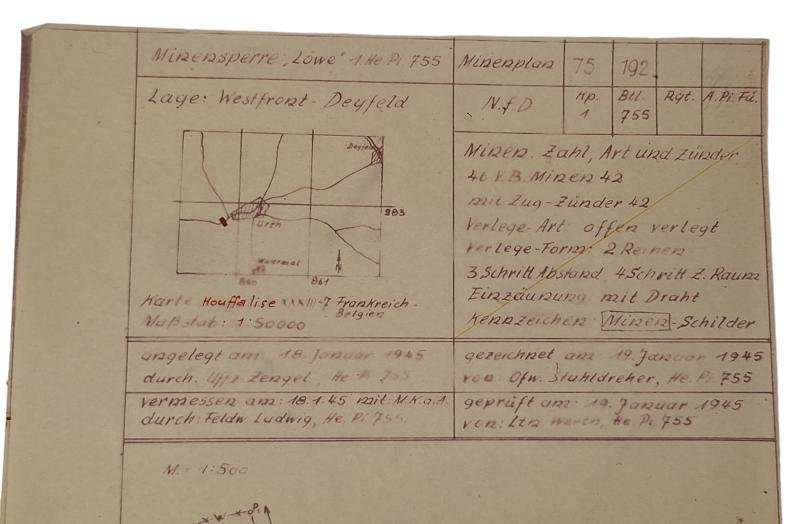 Minensperre „Löwe" 1. He. Pi 755
Minenplan 75 192
Lage: Westfront - Deyfeld
N.f.D
Kp. 1
Btl. 755
Rgt.
A.Pi.Fü.
Deyfeld
983
Urth
860 861
N
Karte Houffalise XXXIII-7 Frankreich-
Belgien
Maßstab: 1:50000
Minen. Zahl, Art und Zünder
46 V.B. Minen 42
mit Zug-Zünder 42
Verlege-Art: offen verlegt
Verlege-Form: 2 Reihen
3 Schritt Abstand, 4 Schritt Z. Raum
Einzäunung mit Draht
Kennzeichen: Minen-Schilder
angelegt am 18. Januar 1945
durch: Uffz. Zengel, He. Pi 755
gezeichnet am: 19. Januar 1945
von: Ofw. Stuhldreher, He. Pi 755
vermessen am: 18.1.45 mit: M.K.a.A.
durch: Feldw. Ludwig, He. Pi 755
geprüft am: 19. Januar 1945
von: Ltn Werth, He. Pi 755
M = 1:500
W
P1